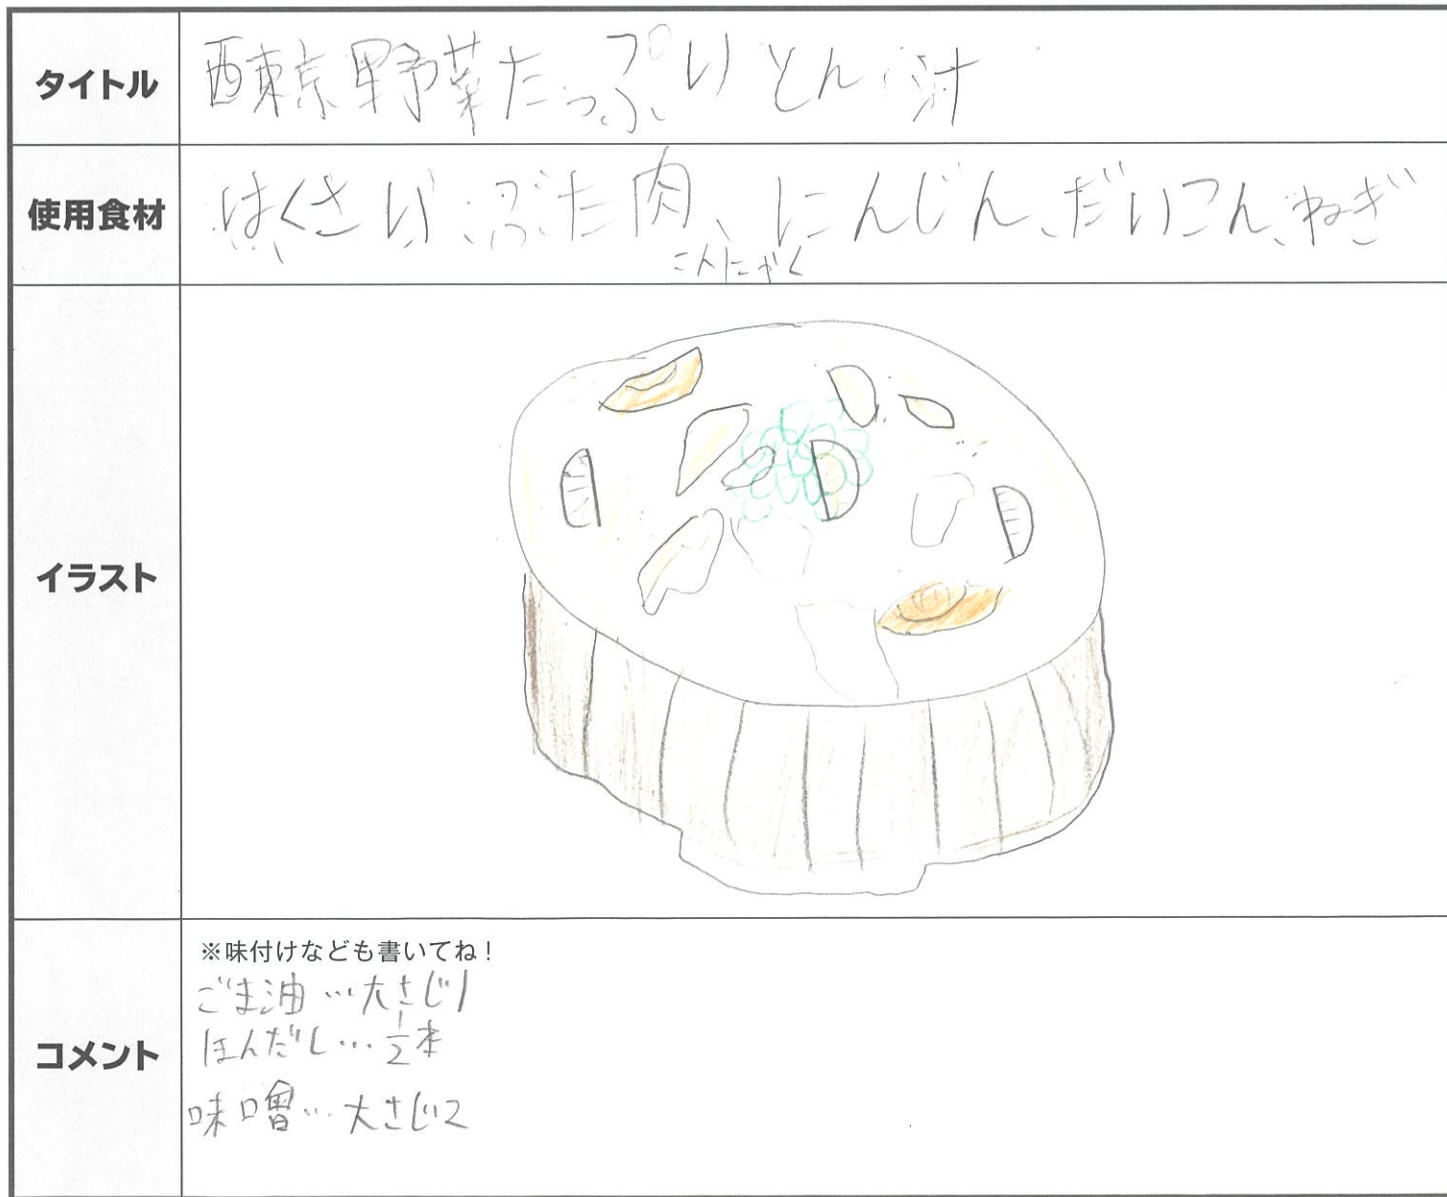 タイトル
西東京野菜たっぷりとん汁
使用食材
はくさい、ぶた肉、にんじん、だいこん、ねぎ
こんにゃく
イラスト
コメント
※味付けなども書いてね!
ごま油…大さじ1
ほんだし…1/2本
味噌…大さじ2